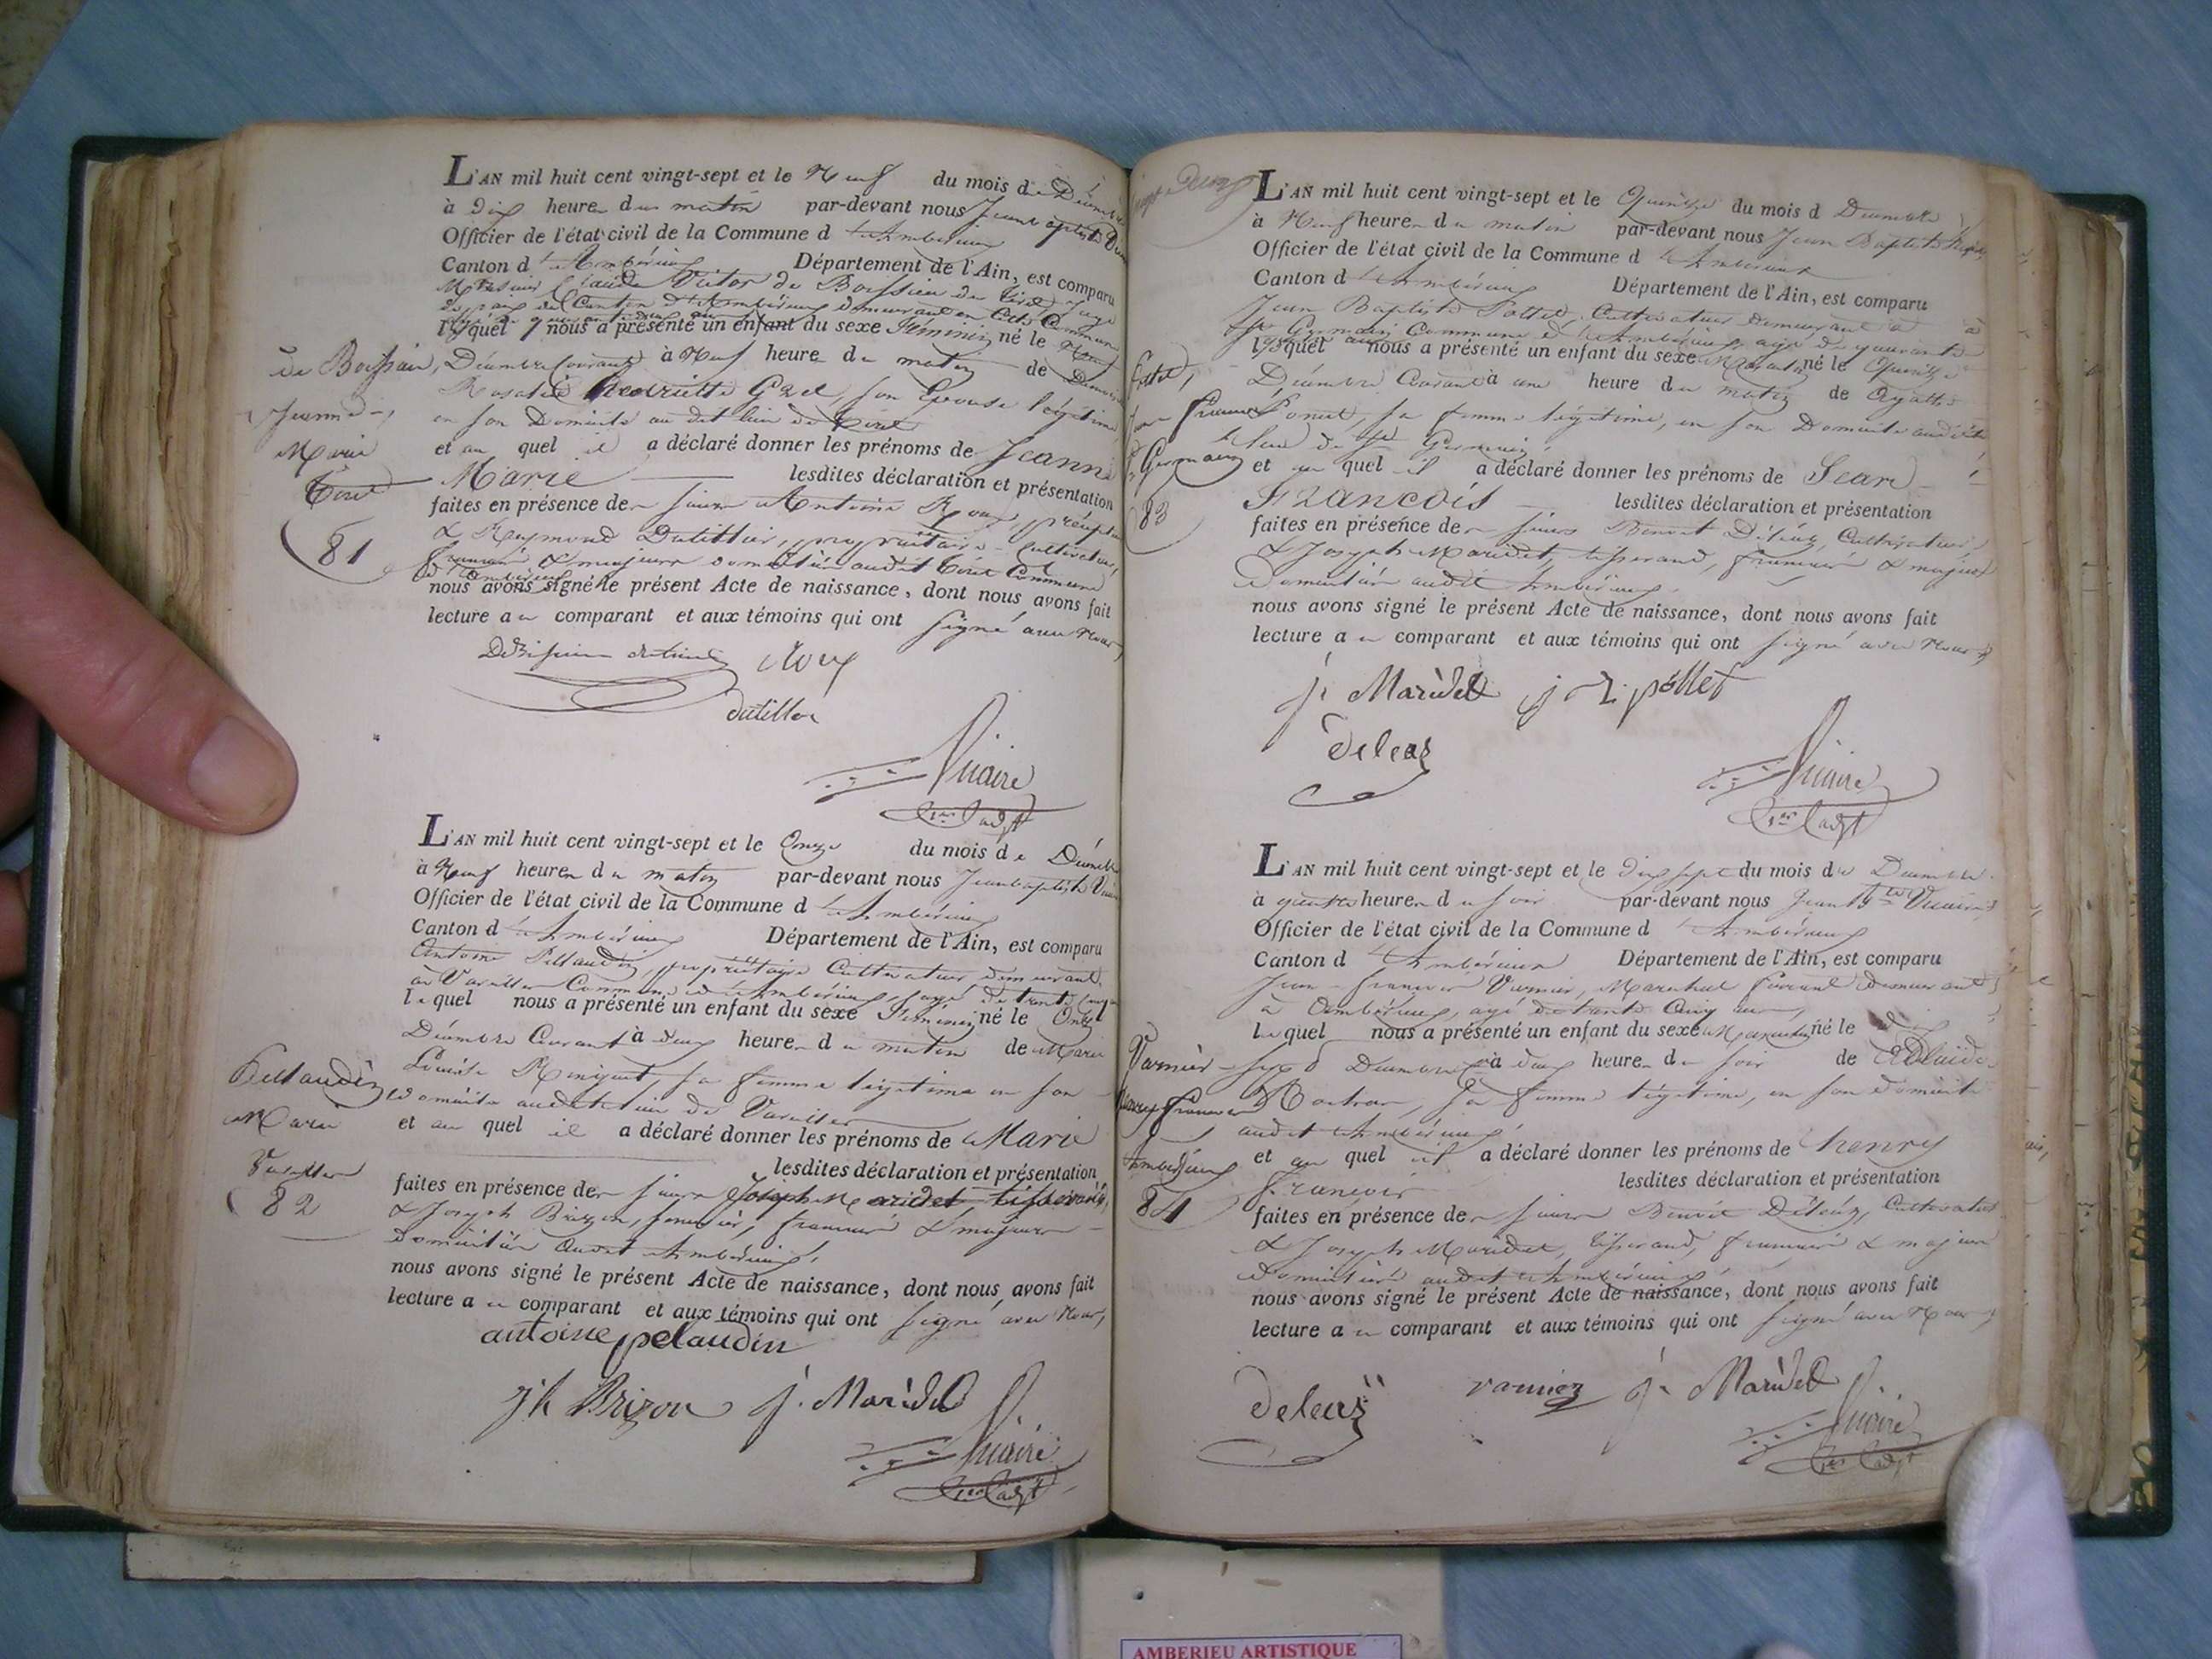 L'AN mil huit cent vingt-sept et le Neuf du mois de Décembre
à dix heure du matin par-devant nous Jean baptiste
Officier de l'état civil de la Commune d'Ambérieux
Canton d'Ambérieux Département de l'Ain, est comparu
Claude Victor de Boissieu du Tiret juge
de paix du Canton d'Ambérieux demeurant en cette Commune
lequel nous a présenté un enfant du sexe féminin né le Neuf
Décembre Courant à Neuf heure du matin de
Rosalie henriette son Epouse légitime
en son Domicile au dit lieu de Tiret
et au quel il a déclaré donner les prénoms de Jeanne
Marie lesdites déclaration et présentation
faites en présence de sieurs Antoine Roux
& Raymond Dutillier, propriétaire Cultivateur,
français & majeurs domiciliés audit Tiret Commune
d'Ambérieux
nous avons signé le présent Acte de naissance, dont nous avons fait
lecture au comparant et aux témoins qui ont signé avec nous
de Boissieu
Jeanne
Marie
Tiret
81
Roux
dutillier
Vicaire
L'AN mil huit cent vingt-sept et le Onze du mois de Décembre
à Neuf heure du matin par-devant nous Jean baptiste
Officier de l'état civil de la Commune d'Ambérieux
Canton d'Ambérieux Département de l'Ain, est comparu
Antoine Pellaudin, propriétaire Cultivateur demeurant
à Vareilles Commune d'Ambérieux, agé de trente
lequel nous a présenté un enfant du sexe féminin né le Onze
Décembre Courant à deux heure du matin de Marie
Louise sa femme légitime en son
domicile audit lieu de Vareilles
et au quel il a déclaré donner les prénoms de Marie
lesdites déclaration et présentation
faites en présence de sieurs Joseph Maridet tisserand,
& Joseph Brizon, français & majeurs
domiciliés audit Ambérieux,
nous avons signé le présent Acte de naissance, dont nous avons fait
lecture au comparant et aux témoins qui ont signé avec nous,
Pellaudin
Marie
Vareilles
82
antoine pelaudin
jh Brizon j. Maridet
Vicaire
L'AN mil huit cent vingt-sept et le Quinze du mois d Décembre
à Neuf heure du matin par-devant nous Jean Baptiste
Officier de l'état civil de la Commune d'Ambérieux
Canton d'Ambérieux Département de l'Ain, est comparu
Jean Baptiste Pottet, Cultivateur demeurant à
St Germain Commune d'Ambérieux, agé de quarante
lequel nous a présenté un enfant du sexe Masculin né le Quinze
Décembre Courant à une heure du matin de
sa femme légitime, en son Domicile audit
lieu de St Germain,
et au quel il a déclaré donner les prénoms de Jean
François lesdites déclaration et présentation
faites en présence de sieurs Benoit Déléaz, Cultivateur
& Joseph Maridet, tisserand, français & majeurs
Domiciliés audit Ambérieux,
nous avons signé le présent Acte de naissance, dont nous avons fait
lecture au comparant et aux témoins qui ont signé avec nous
83
j. Maridet pottet
deleaz
Vicaire
L'AN mil huit cent vingt-sept et le dix sept du mois de Décembre
à quatre heure du soir par-devant nous Jean Bte Vicaire
Officier de l'état civil de la Commune d'Ambérieux
Canton d'Ambérieux Département de l'Ain, est comparu
Jean-françois Varnier, Marechal ferrant demeurant
à Ambérieux, agé de trente cinq ans,
lequel nous a présenté un enfant du sexe Masculin né le
Décembre à deux heure du soir de Adelaïde
sa femme légitime, en son domicile
audit Ambérieux,
et au quel il a déclaré donner les prénoms de henry
françois lesdites déclaration et présentation
faites en présence de sieurs Benoit Déléaz, Cultivateur
& Joseph Maridet, tisserand, français & majeurs
domiciliés audit Ambérieux,
nous avons signé le présent Acte de naissance, dont nous avons fait
lecture au comparant et aux témoins qui ont signé avec nous
Varnier
henry françois
Ambérieux
84
deleaz varnier j. Maridet
Vicaire
AMBERIEU ARTISTIQUE